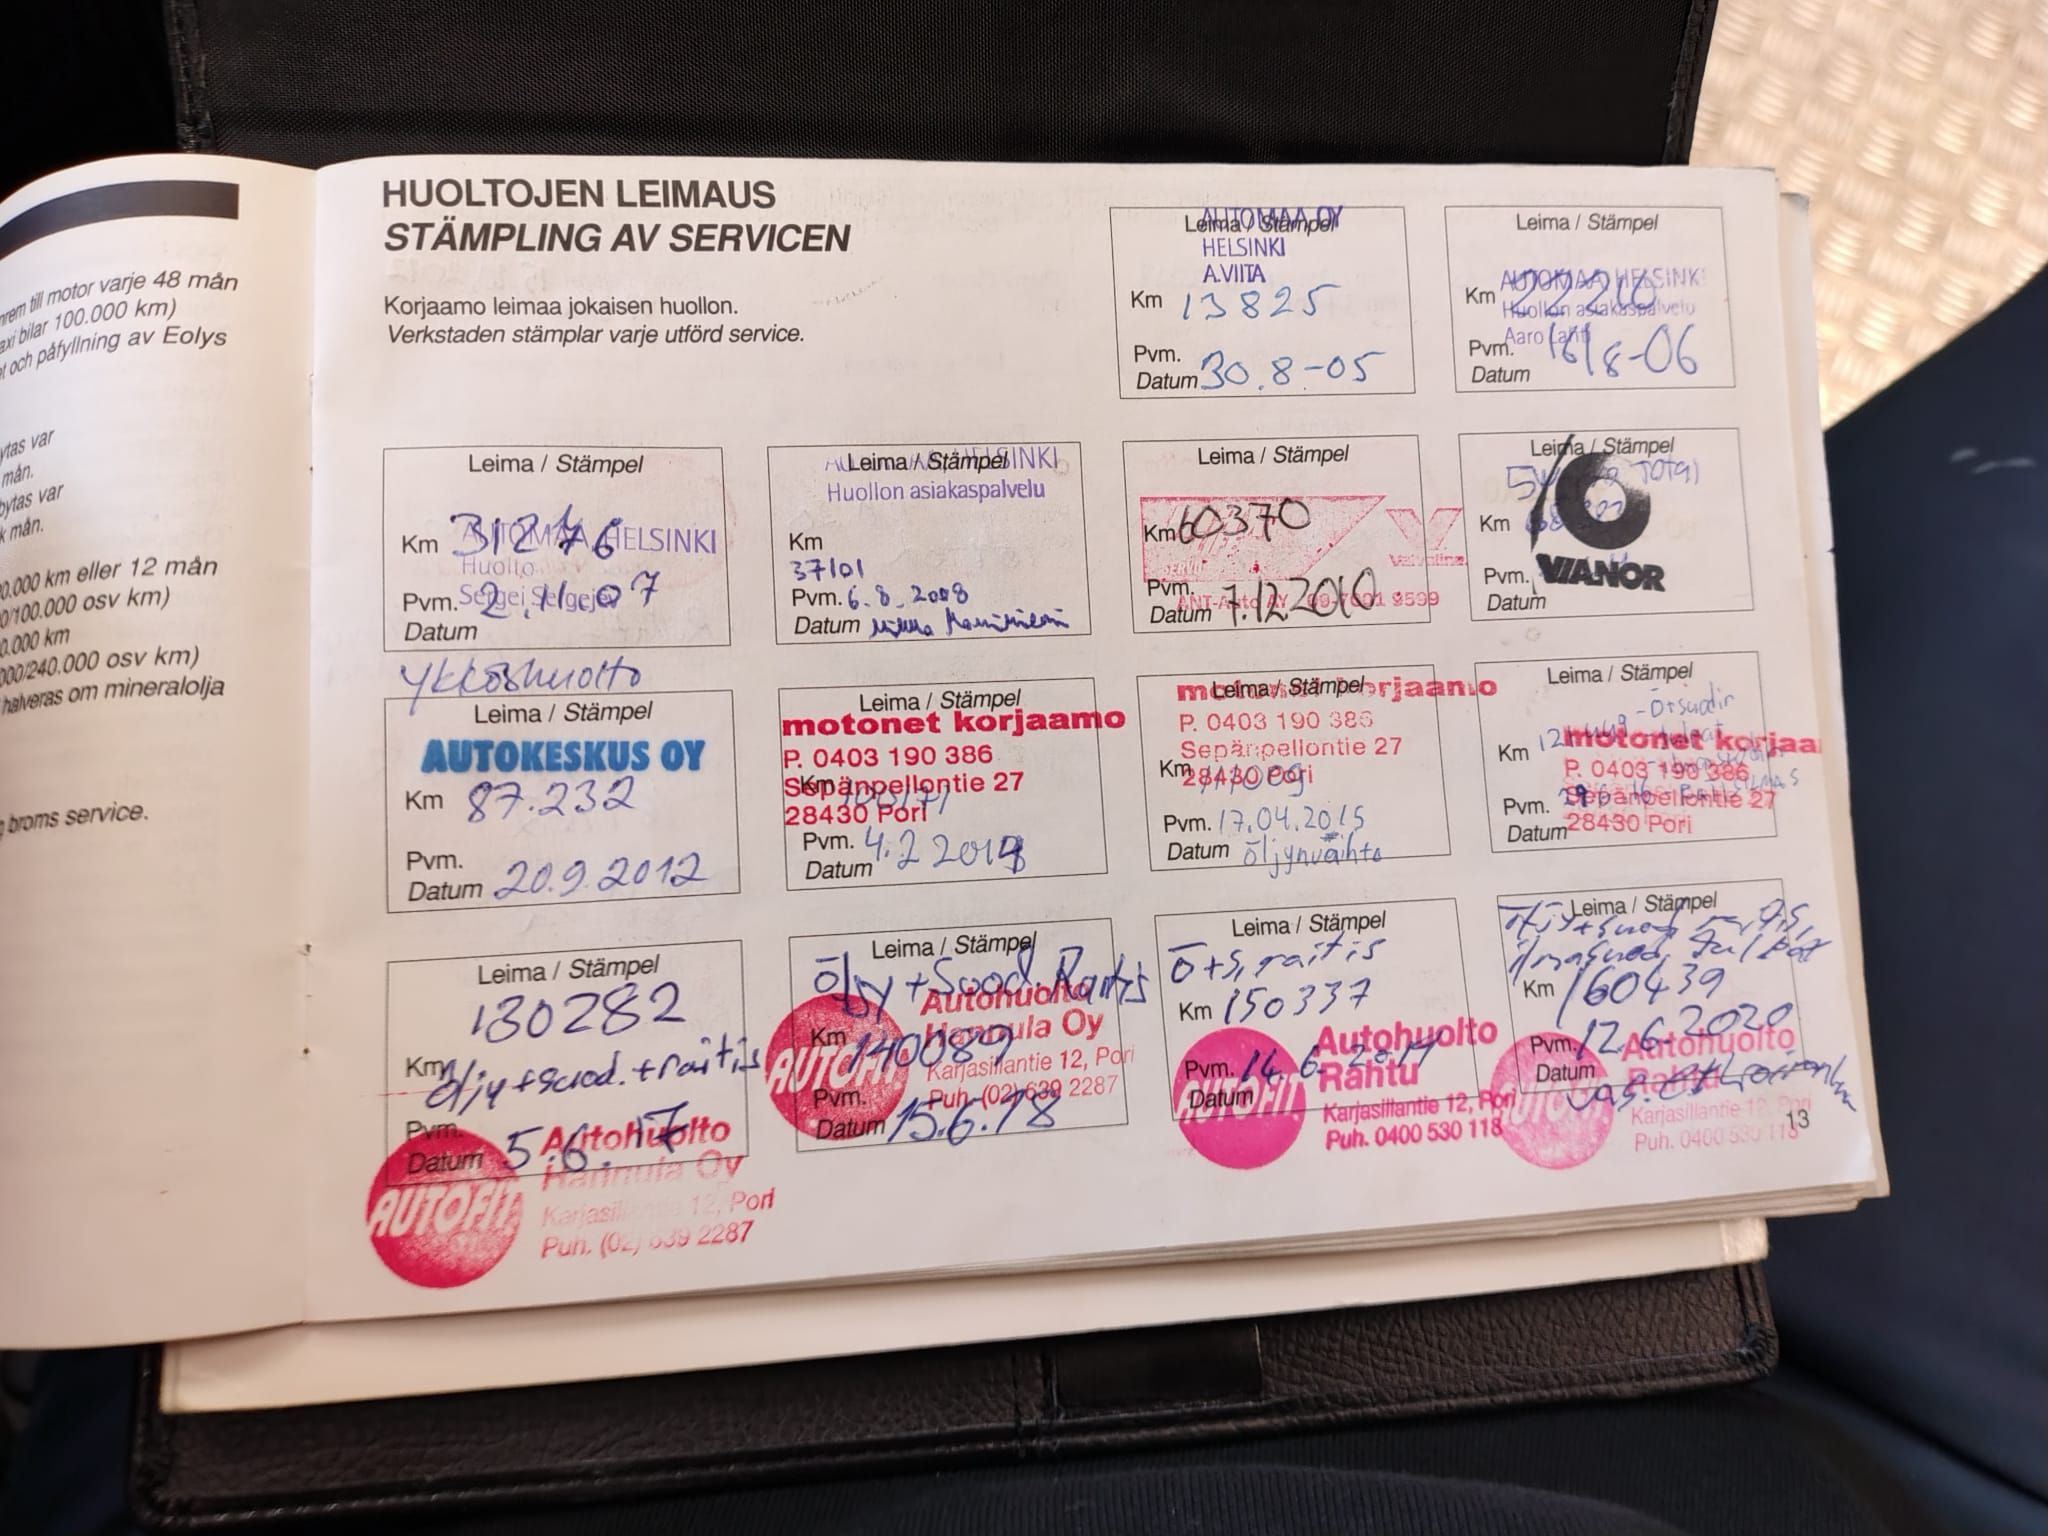 rem till motor varje 48 mån
axi bilar 100.000 km)
t och påfyllning av Eolys
ytas var
mån.
bytas var
k mån.
0.000 km eller 12 mån
0/100.000 osv km)
0.000 km
000/240.000 osv km)
halveras om mineralolja
broms service.
HUOLTOJEN LEIMAUS
STÄMPLING AV SERVICEN
Korjaamo leimaa jokaisen huollon.
Verkstaden stämplar varje utförd service.
Leima / Stämpel
AUTOMAA OY
HELSINKI
A.VIITA
Km 13825
Pvm.
Datum 30.8-05
Leima / Stämpel
AUTOMAA HELSINKI
Km 22216
Huollon asiakaspalvelu
Aaro Lahti
Pvm. 16/8-06
Datum
Leima / Stämpel
Km 31276
AUTOMAA HELSINKI
Huolto
Sergei Sergejev
Pvm. 2.11.07
Datum
ykköshuolto
Leima / Stämpel
HELSINKI
Huollon asiakaspalvelu
Km
37101
Pvm. 6.8.2008
Datum
Leima / Stämpel
Km 60370
Valvoline
Pvm.
Datum 7.12.2010
ANT-Auto AY 09-7001 9599
Leima / Stämpel
Total
Km
Pvm. VIANOR
Datum
Leima / Stämpel
AUTOKESKUS OY
Km 87.232
Pvm.
Datum 20.9.2012
Leima / Stämpel
motonet korjaamo
P. 0403 190 386
Sepänpellontie 27
Km
28430 Pori
Pvm. 4.2
Datum
Leima / Stämpel
motonet korjaamo
P. 0403 190 386
Sepänpellontie 27
Km
28430 Pori
Pvm. 17.04.2015
Datum öljynvaihto
Leima / Stämpel
motonet korjaa
Km
P. 0403 190 386
Pvm.
Sepänpellontie 27
Datum
28430 Pori
Leima / Stämpel
130282
Km öljy+suod.+raitis
Pvm.
Datum 5.6.17
AUTOFIT
Autohuolto
Hannula Oy
Karjasillantie 12, Pori
Puh. (02) 639 2287
Leima / Stämpel
Öljy+Suod. Raitis
Km 140089
AUTOFIT
Autohuolto
Hannula Oy
Karjasillantie 12, Pori
Puh. (02) 639 2287
Pvm.
Datum 15.6.18
Leima / Stämpel
Ö+S, raitis
Km 150337
Pvm. 14.6.
Datum
AUTOFIT
Autohuolto
Rahtu
Karjasillantie 12, Pori
Puh. 0400 530 118
Leima / Stämpel
Km 160439
Pvm. 12.6.2020
Datum
Autohuolto
Rahtu
Karjasillantie 12, Pori
Puh. 0400 530 118
13